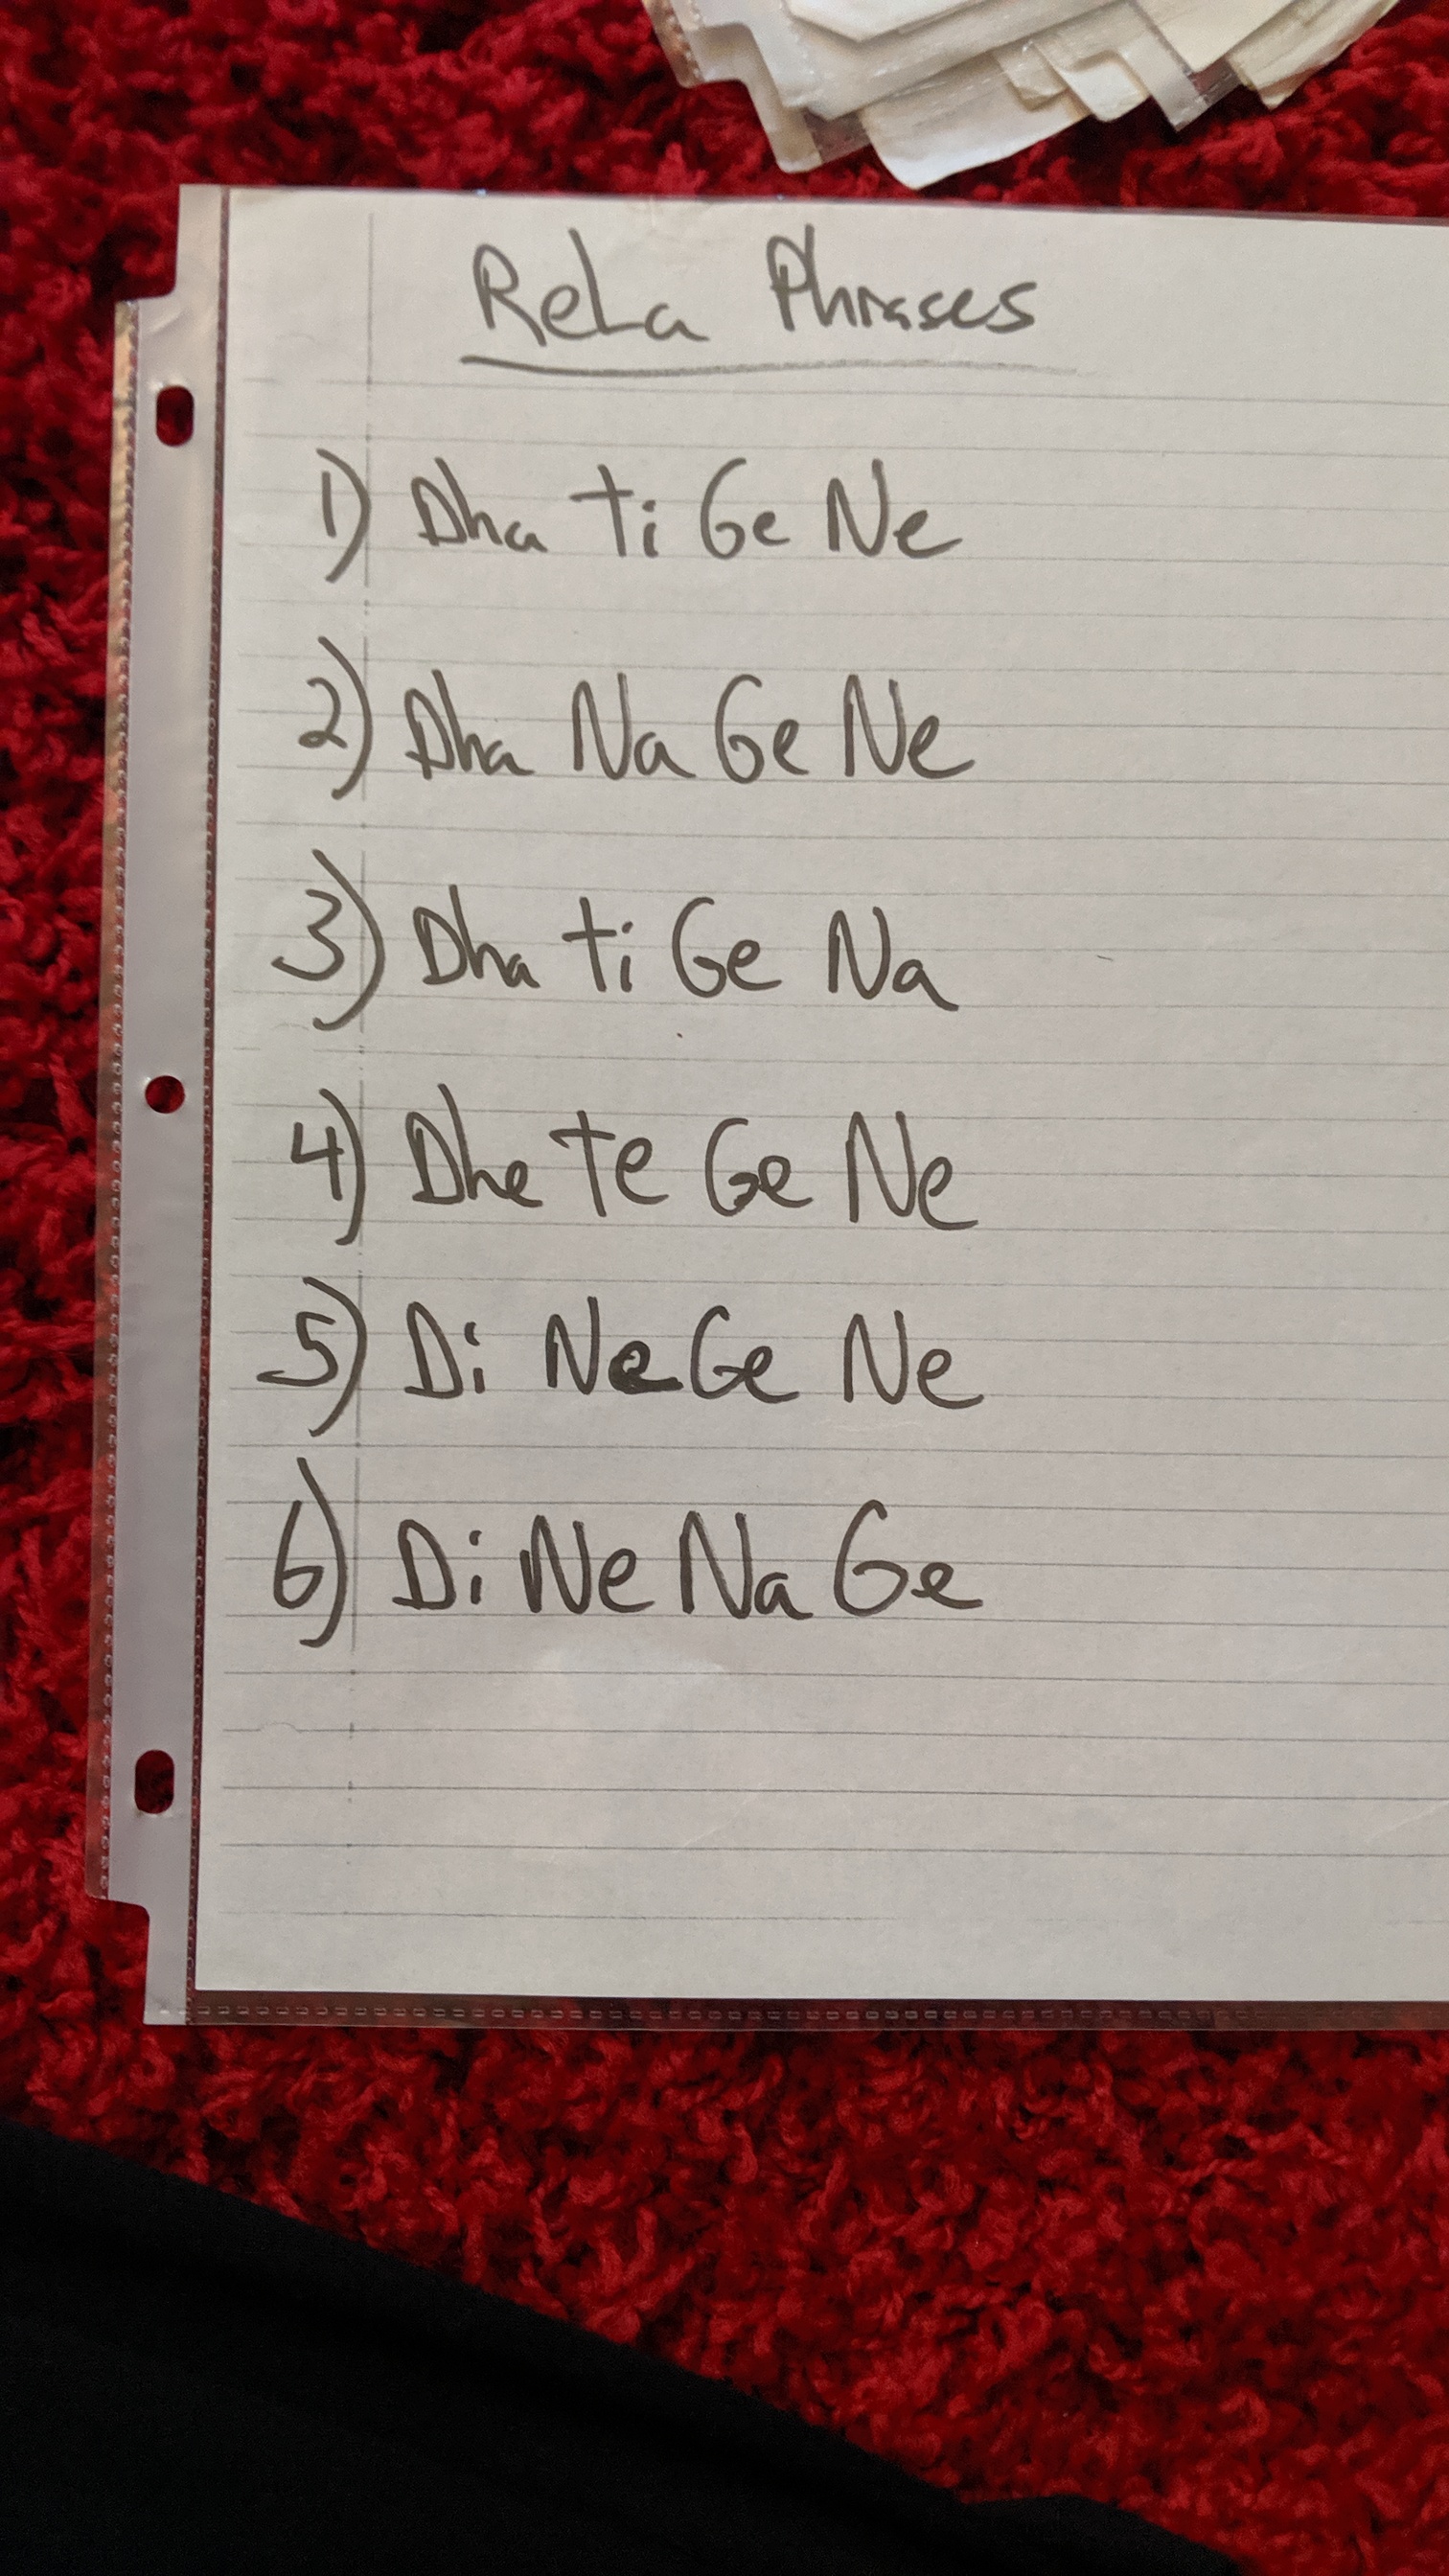 ReLa Phrases
1) Dha ti Ge Ne
2) Dha Na Ge Ne
3) Dha ti Ge Na
4) Dhe te Ge Ne
5) Di Ne Ge Ne
6) Di Ne Na Ge